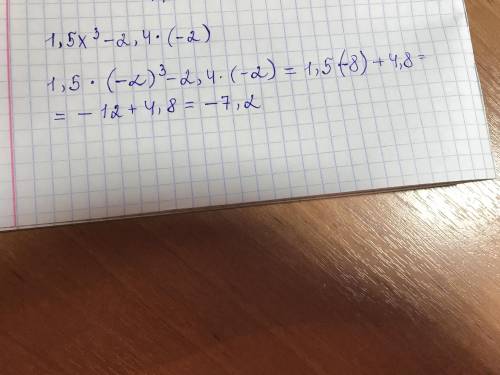 1,5x³-2,4·(-2)
1,5·(-2)³-2,4·(-2)=1,5(-8)+4,8=
=-12+4,8=-7,2